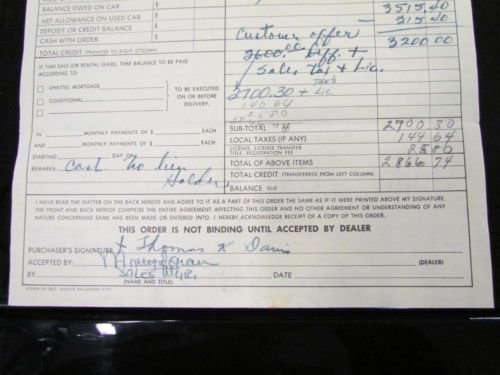 BALANCE OWED ON CAR 3515.40
NET ALLOWANCE ON USED CAR 315.40
DEPOSIT OR CREDIT BALANCE
CASH WITH ORDER Customer offer 3200.00
TOTAL CREDIT (TRANSFER TO RIGHT COLUMN) $ 2600.00 Diff. +
/ Sales Tax + Lic.
IF THIS SALE (OR RENTAL LEASE, TIME BALANCE TO BE PAID
ACCORDING TO:
TAX'S
CHATTEL MORTGAGE TO BE EXECUTED 2700.30 + Lic.
CONDITIONAL ON OR BEFORE 140 64
DELIVERY.
SUB-TOTAL 2700 30
IN MONTHLY PAYMENTS OF $ EACH LOCAL TAXES (IF ANY) 144 64
AND MONTHLY PAYMENTS OF $ EACH LICENSE, LICENSE TRANSFER TITLE, REGISTRATION FEE 25 80
STARTING DAY OF TOTAL OF ABOVE ITEMS 2866 74
REMARKS: Cash no lien TOTAL CREDIT (TRANSFERRED FROM LEFT COLUMN)
Holder BALANCE DUE
I HAVE READ THE MATTER ON THE BACK HEREOF AND AGREE TO IT AS A PART OF THIS ORDER THE SAME AS IF IT WERE PRINTED ABOVE MY SIGNATURE.
THE FRONT AND BACK HEREOF COMPRISE THE ENTIRE AGREEMENT AFFECTING THIS ORDER AND NO OTHER AGREEMENT OR UNDERSTANDING OF ANY
NATURE CONCERNING SAME HAS BEEN MADE OR ENTERED INTO. I HEREBY ACKNOWLEDGE RECEIPT OF A COPY OF THIS ORDER.
THIS ORDER IS NOT BINDING UNTIL ACCEPTED BY DEALER
PURCHASER'S SIGNATURE X Thomas K Davis
ACCEPTED BY: (DEALER)
BY SALES MGR. DATE
(NAME AND TITLE)